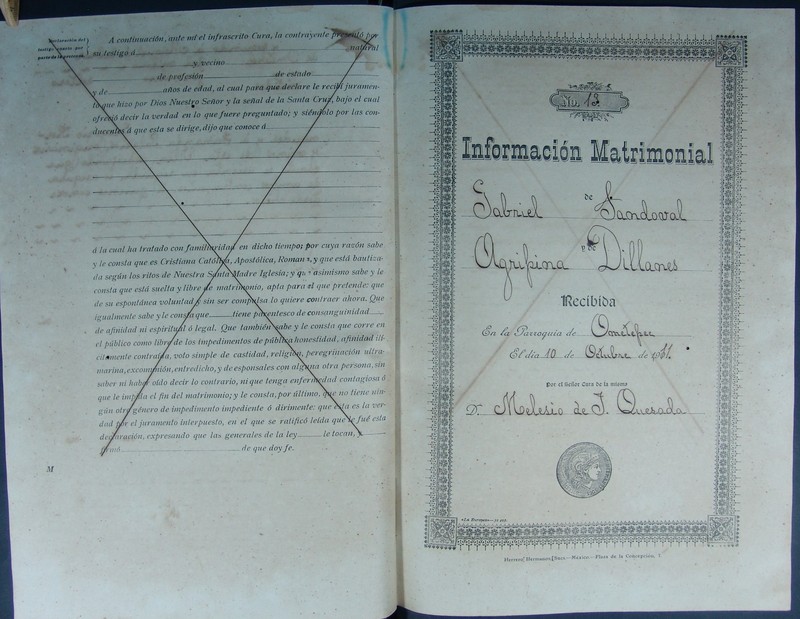 Declaración del
testigo cuarto por
parte de la pretensa.
A continuación, ante mí el infrascrito Cura, la contrayente presentó por
su testigo á natural
y vecino
de profesión de estado
y de años de edad, al cual para que declare le recibí juramen-
to que hizo por Dios Nuestro Señor y la señal de la Santa Cruz, bajo el cual
ofreció decir la verdad en lo que fuere preguntado; y siéndolo por las con-
ducentes á que esta se dirige, dijo que conoce á
á la cual ha tratado con familiaridad en dicho tiempo; por cuya razón sabe
y le consta que es Cristiana Católica, Apostólica, Romana, y que está bautiza-
da según los ritos de Nuestra Santa Madre Iglesia; y que asimismo sabe y le
consta que está suelta y libre de matrimonio, apta para el que pretende: que
de su espontánea voluntad y sin ser compulsa lo quiere contraer ahora. Que
igualmente sabe y le consta que tiene parentesco de consanguinidad
de afinidad ni espiritual ó legal. Que también sabe y le consta que corre en
el público como libre de los impedimentos de pública honestidad, afinidad ilí-
citamente contraída, voto simple de castidad, religión, peregrinación ultra-
marina, excomunión, entredicho, y de esponsales con alguna otra persona, sin
saber ni haber oído decir lo contrario, ni que tenga enfermedad contagiosa ó
que le impida el fin del matrimonio; y le consta, por último, que no tiene nin-
gún otro género de impedimento impediente ó dirimente: que esta es la ver-
dad por el juramento interpuesto, en el que se ratificó leída que le fué esta
declaración, expresando que las generales de la ley le tocan, y
firmó de que doy fe.
M
Núm. 13.
Información Matrimonial
de
Gabriel Sandoval
y de
Agripina Dillanes
Recibida
En la Parroquia de Ometepec
El día 10 de Octubre de 931.
Por el Señor Cura de la misma
D. Melesio de J. Quesada
Herrero Hermanos, Sucs.—México.—Plaza de la Concepción, 7.